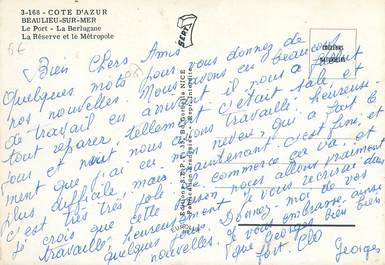 3-168 - COTE D'AZUR
BEAULIEU-SUR-MER
Le Port - La Berlugane
La Réserve et le Métropole
6€
Bien Chers Amis
Quelques mots pour vous donnez de
nos nouvelles. Nous avons eu beaucoup
de travail en arrivant il nous a fallut
tout réparer tellement c'était sale, et
tout et nous avons travaillé heureuse-
ment que j'ai eu mon neveu, qui a fait le
plus difficile, mais maintenant c'est fine, et
c'est très très joli. Le commerce ça va, et
je crois que cette saison nous allons vraiment
travaillé, heureusement. Je vous récrirai dans
quelques jours. Donnez moi de vos
nouvelles. Je vous embrasse ainsi
que Georges bien bien
fort. Clo
Georges
SEPT
NICE